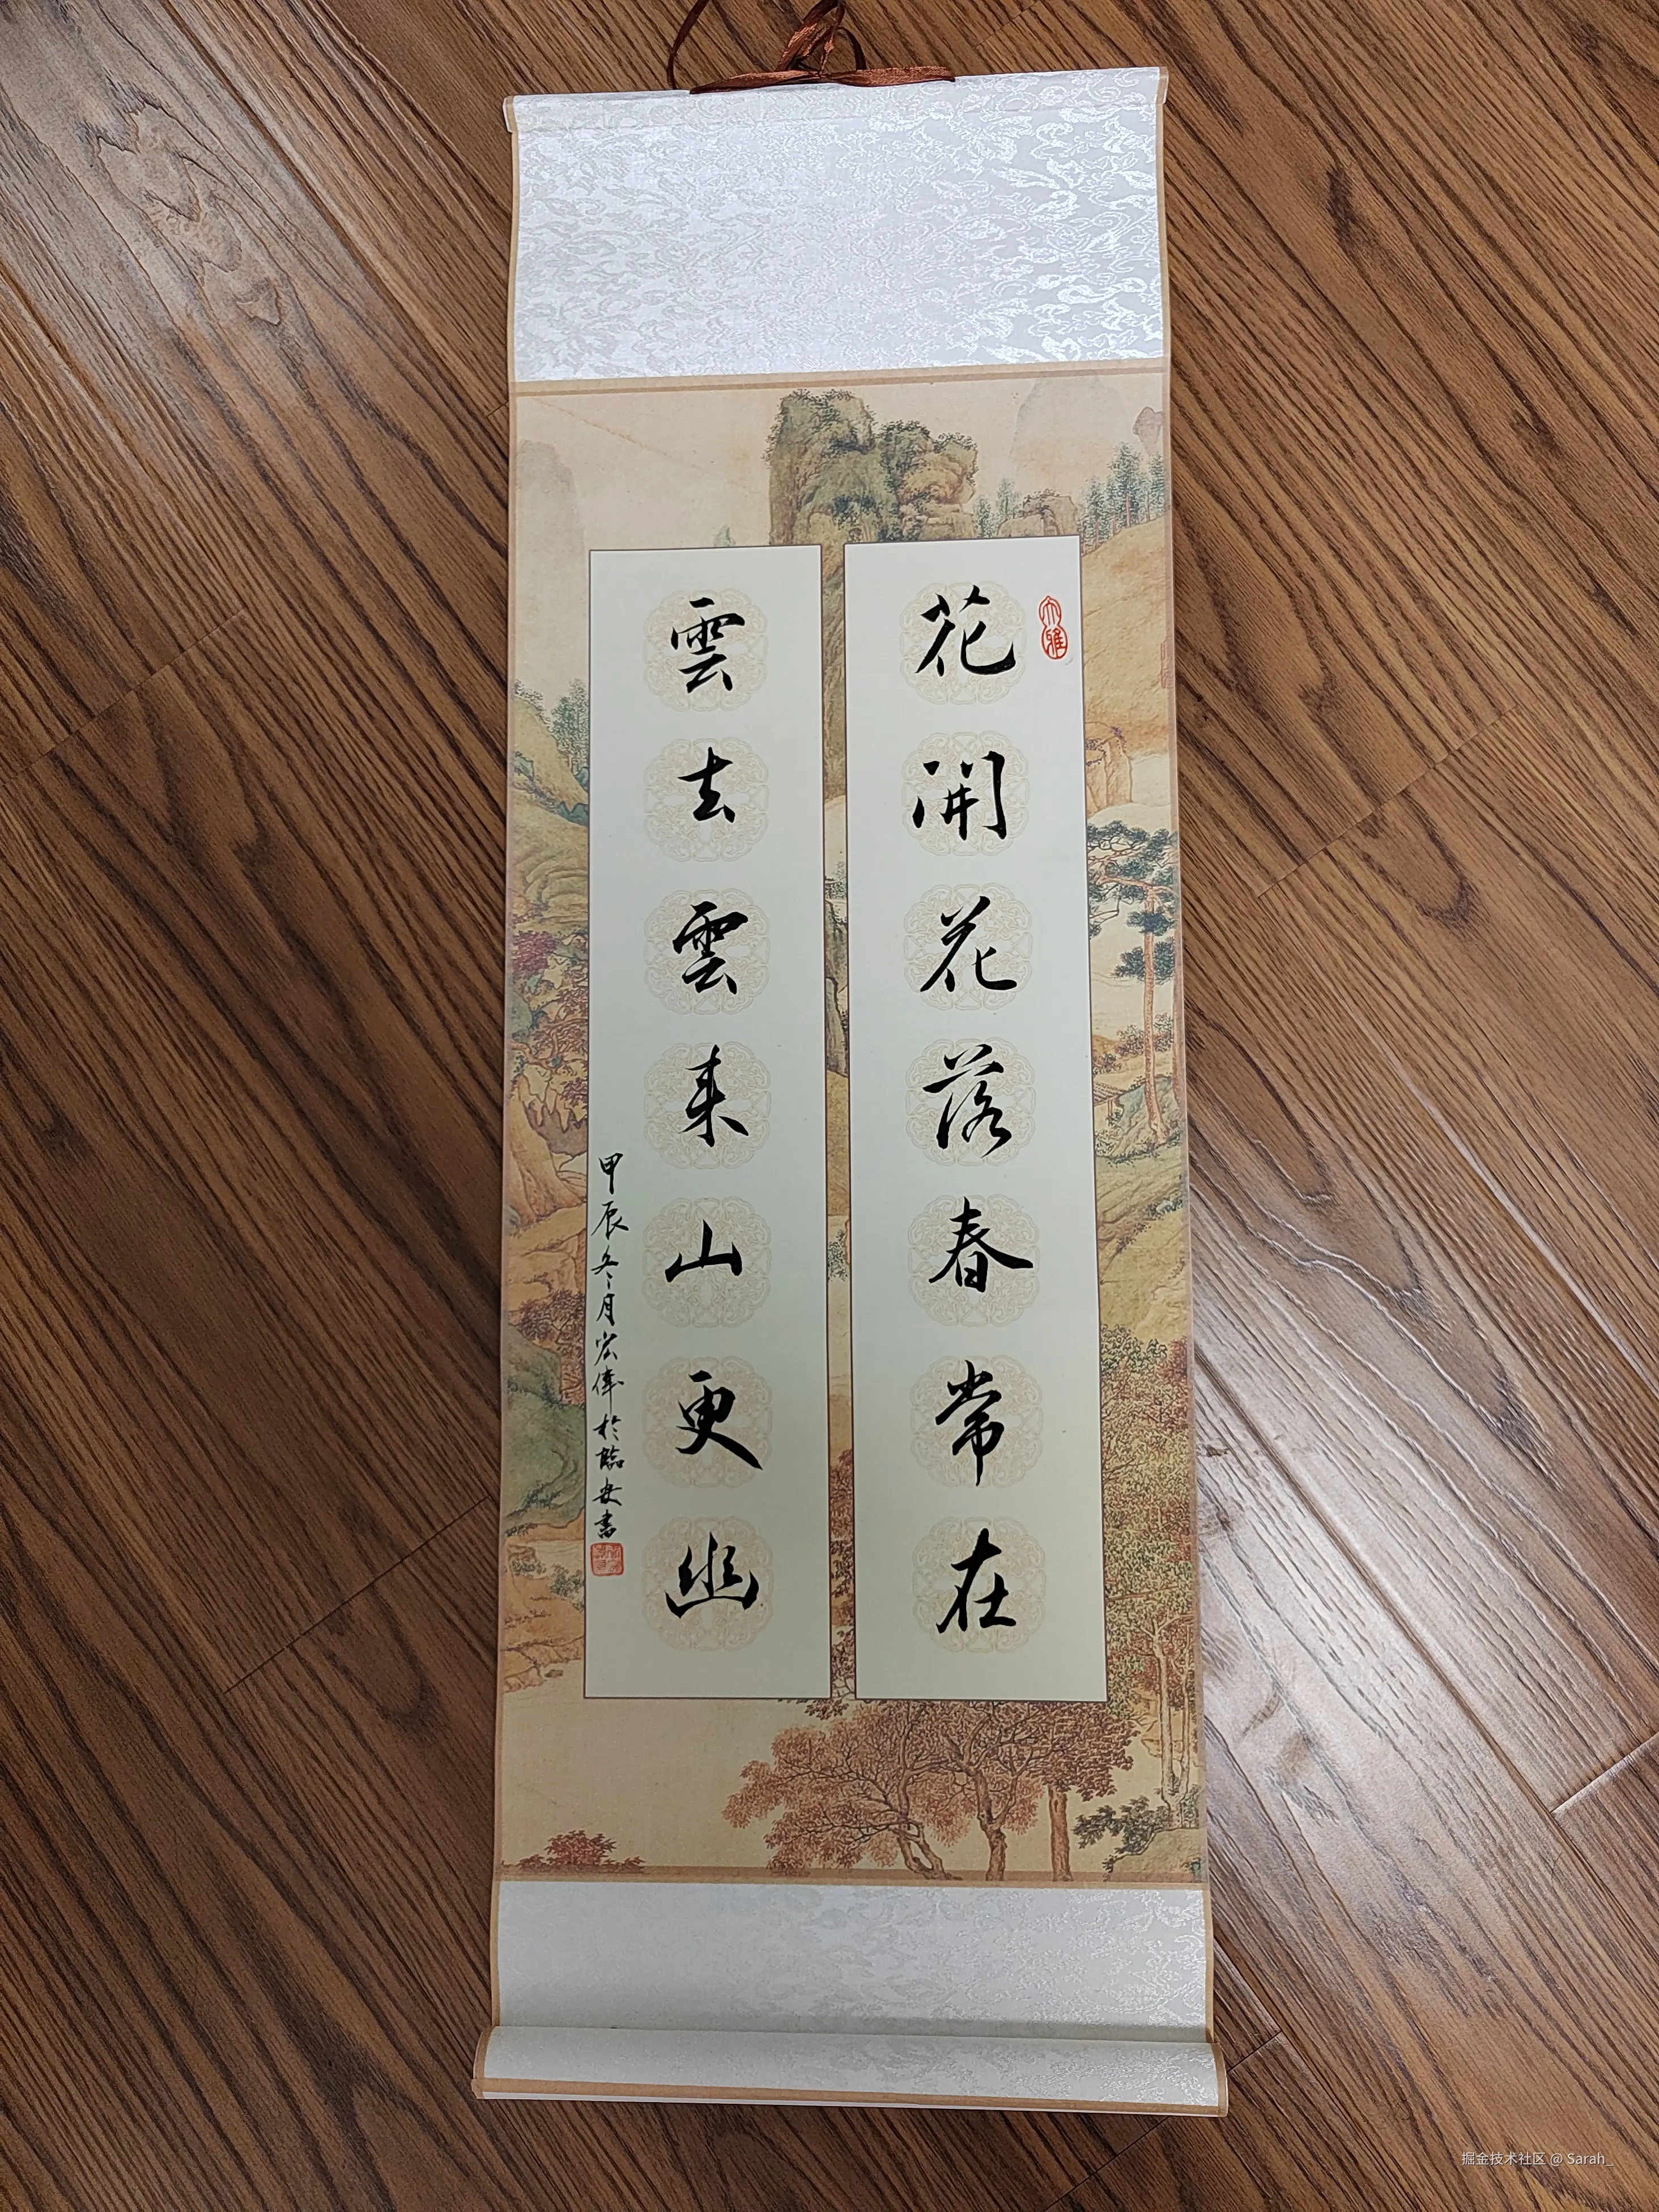 花開花落春常在
大雅
雲去雲來山更幽
甲辰冬月宏偉於臨安書
掘金技术社区 @ Sarah_